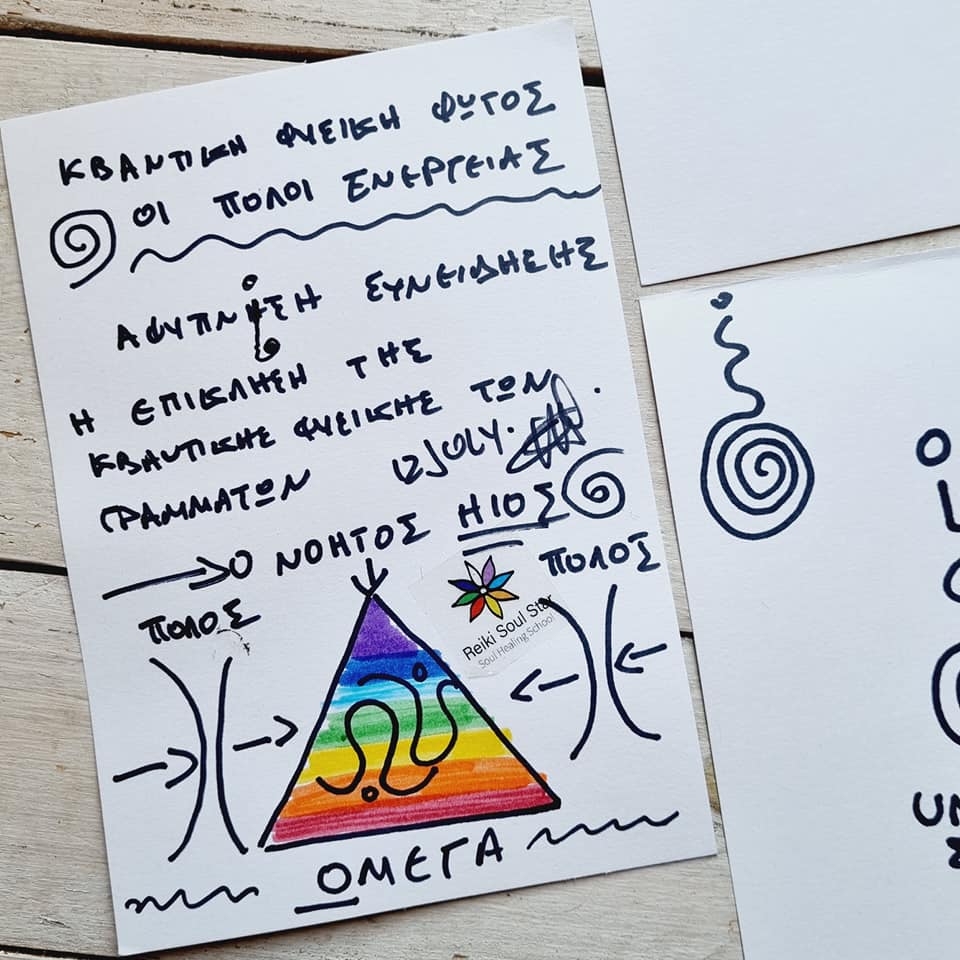 ΚΒΑΝΤΙΚΗ ΦΥΣΙΚΗ ΦΩΤΟΣ
ΟΙ ΠΟΛΟΙ ΕΝΕΡΓΕΙΑΣ
ΑΦΥΠΝΙΣΗ ΣΥΝΕΙΔΗΣΗΣ
Η ΕΠΙΚΛΗΣΗ ΤΗΣ
ΚΒΑΝΤΙΚΗΣ ΦΥΣΙΚΗΣ ΤΩΝ
ΓΡΑΜΜΑΤΩΝ 12 JULY.
Ο ΝΟΗΤΟΣ ΗΙΟΣ
ΠΟΛΟΣ
ΠΟΛΟΣ
Reiki Soul Star
Soul Healing School
ΟΜΕΓΑ